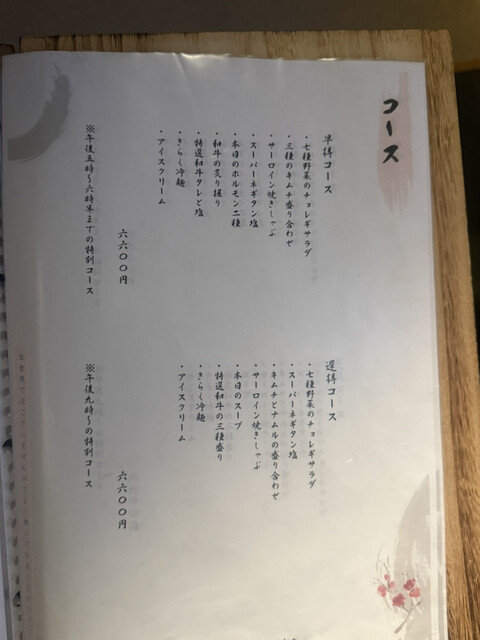 コース
早得コース
・七種野菜のチョレギサラダ
・三種のキムチ盛り合わせ
・サーロイン焼きしゃぶ
・スーパーネギタン塩
・本日のホルモン二種
・和牛の炙り握り
・特選和牛タレと塩
・きらく冷麺
・アイスクリーム
六六〇〇円
※午後五時〜六時半までの特別コース
遅得コース
・七種野菜のチョレギサラダ
・スーパーネギタン塩
・キムチとナムルの盛り合わせ
・サーロイン焼きしゃぶ
・本日のスープ
・特選和牛の三種盛り
・きらく冷麺
・アイスクリーム
六六〇〇円
※午後九時〜の特別コース